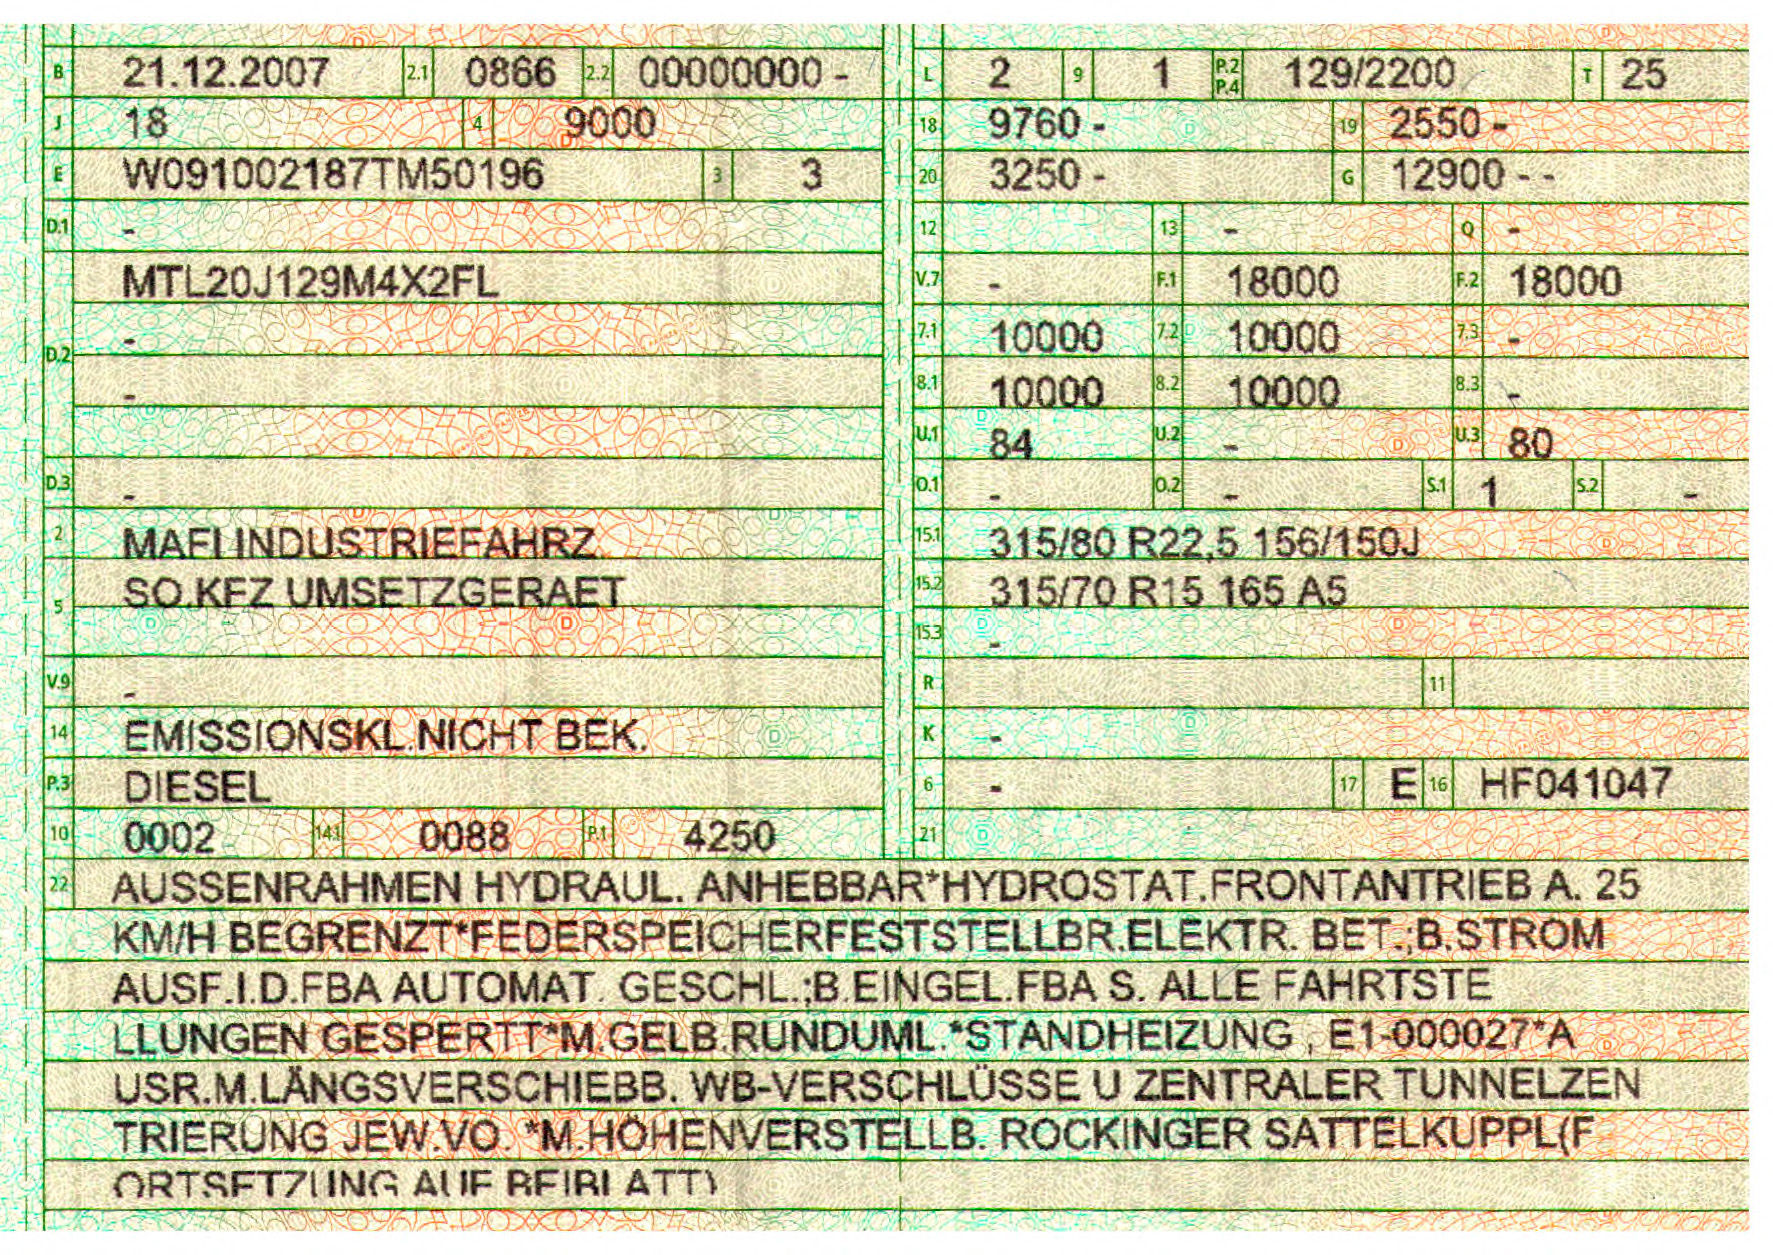 B 21.12.2007 2.1 0866 2.2 00000000 -
J 18 4 9000
E W091002187TM50196 3 3
D.1 -
MTL20J129M4X2FL
D.2 -
-
D.3 -
2 MAFI INDUSTRIEFAHRZ.
5 SO.KFZ UMSETZGERAET
-
V.9 -
14 EMISSIONSKL.NICHT BEK.
P.3 DIESEL
10 0002 14.1 0088 P.1 4250
L 2 9 1 P.2 P.4 129/2200 T 25
18 9760 - 19 2550 -
20 3250 - G 12900 - -
12 13 - Q -
V.7 - F.1 18000 F.2 18000
7.1 10000 7.2 10000 7.3 -
8.1 10000 8.2 10000 8.3 -
U.1 84 U.2 - U.3 80
O.1 - O.2 - S.1 1 S.2 -
15.1 315/80 R22,5 156/150J
15.2 315/70 R15 165 A5
15.3 -
R 11
K -
6 - 17 E 16 HF041047
21
22 AUSSENRAHMEN HYDRAUL. ANHEBBAR*HYDROSTAT.FRONTANTRIEB A. 25
KM/H BEGRENZT*FEDERSPEICHERFESTSTELLBR.ELEKTR. BET.;B.STROM
AUSF.I.D.FBA AUTOMAT. GESCHL.;B.EINGEL.FBA S. ALLE FAHRTSTE
LLUNGEN GESPERTT*M.GELB.RUNDUML.*STANDHEIZUNG , E1-000027*A
USR.M.LÄNGSVERSCHIEBB. WB-VERSCHLÜSSE U ZENTRALER TUNNELZEN
TRIERUNG JEW.VO. *M.HÖHENVERSTELLB. ROCKINGER SATTELKUPPL(F
ORTSETZUNG AUF BEIBLATT)